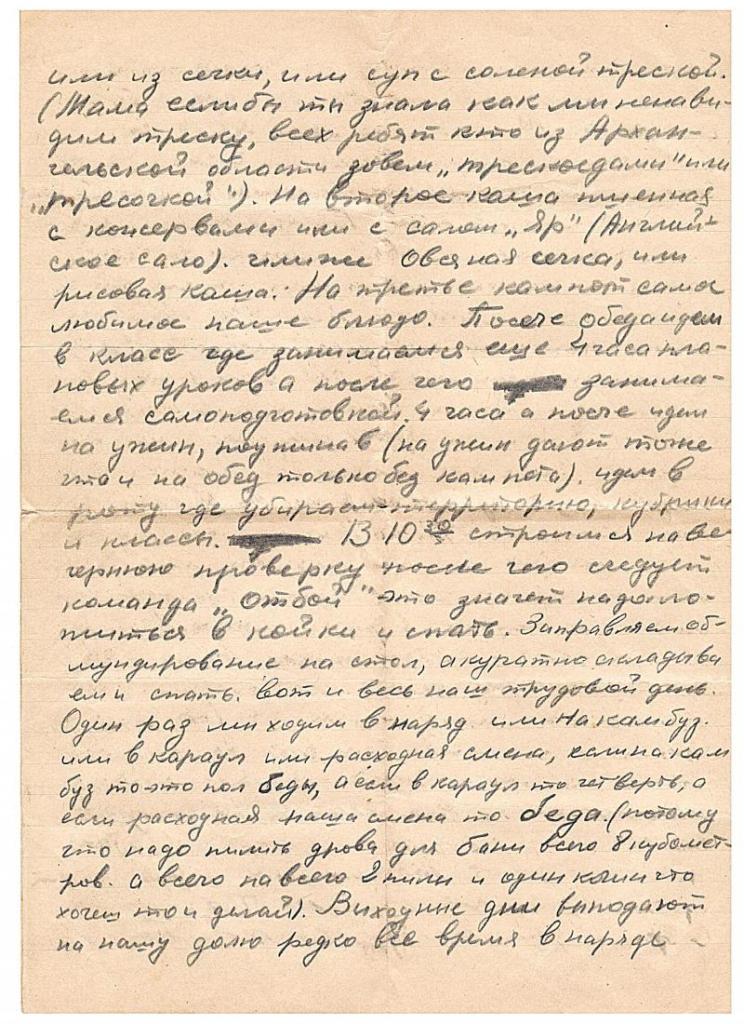 или из сечки, или суп с соленой треской.
(Мама еслибы ты знала как мы ненави-
дим треску, всех ребят кто из Архан-
гельской области зовем „трескоедами" или
„тресочкой"). На второе каша пшенная
с консервами или с салом „Яр" (Английс-
ское сало). илиже Овсяная сечка, или
рисовая каша. На третье кампот самое
любимое наше блюдо. После обеда идем
в класс где занимаемся еще 4 часа пла-
новых уроков а после чего занима-
емся самоподготовкой. 4 часа а после идем
на ужин, поужинав (на ужин дают тоже
что и на обед только без кампота). идем в
роту где убираем территорию, кубрики
и классы. В 10 30 строимся на ве
чернюю проверку после чего следует
команда „отбой" это значет надо ло-
житься в койки и спать. Заправляем об-
мундирование на стол, акуратно складыва
ем и спать. вот и весь наш трудовой день.
Один раз мы ходим в наряд. или на камбуз.
или в караул или расходная смена, коли на кам
буз то это пол беды, а если в караул то четверть, а
если расходная наша смена то беда. (потому
что надо пилить дрова для бани всего 8 кубомет-
ров. а всего навсего 2 пилы и один колин что
хочеш то и делай). Выходные дни выподают
на нашу долю редко все время в наряде